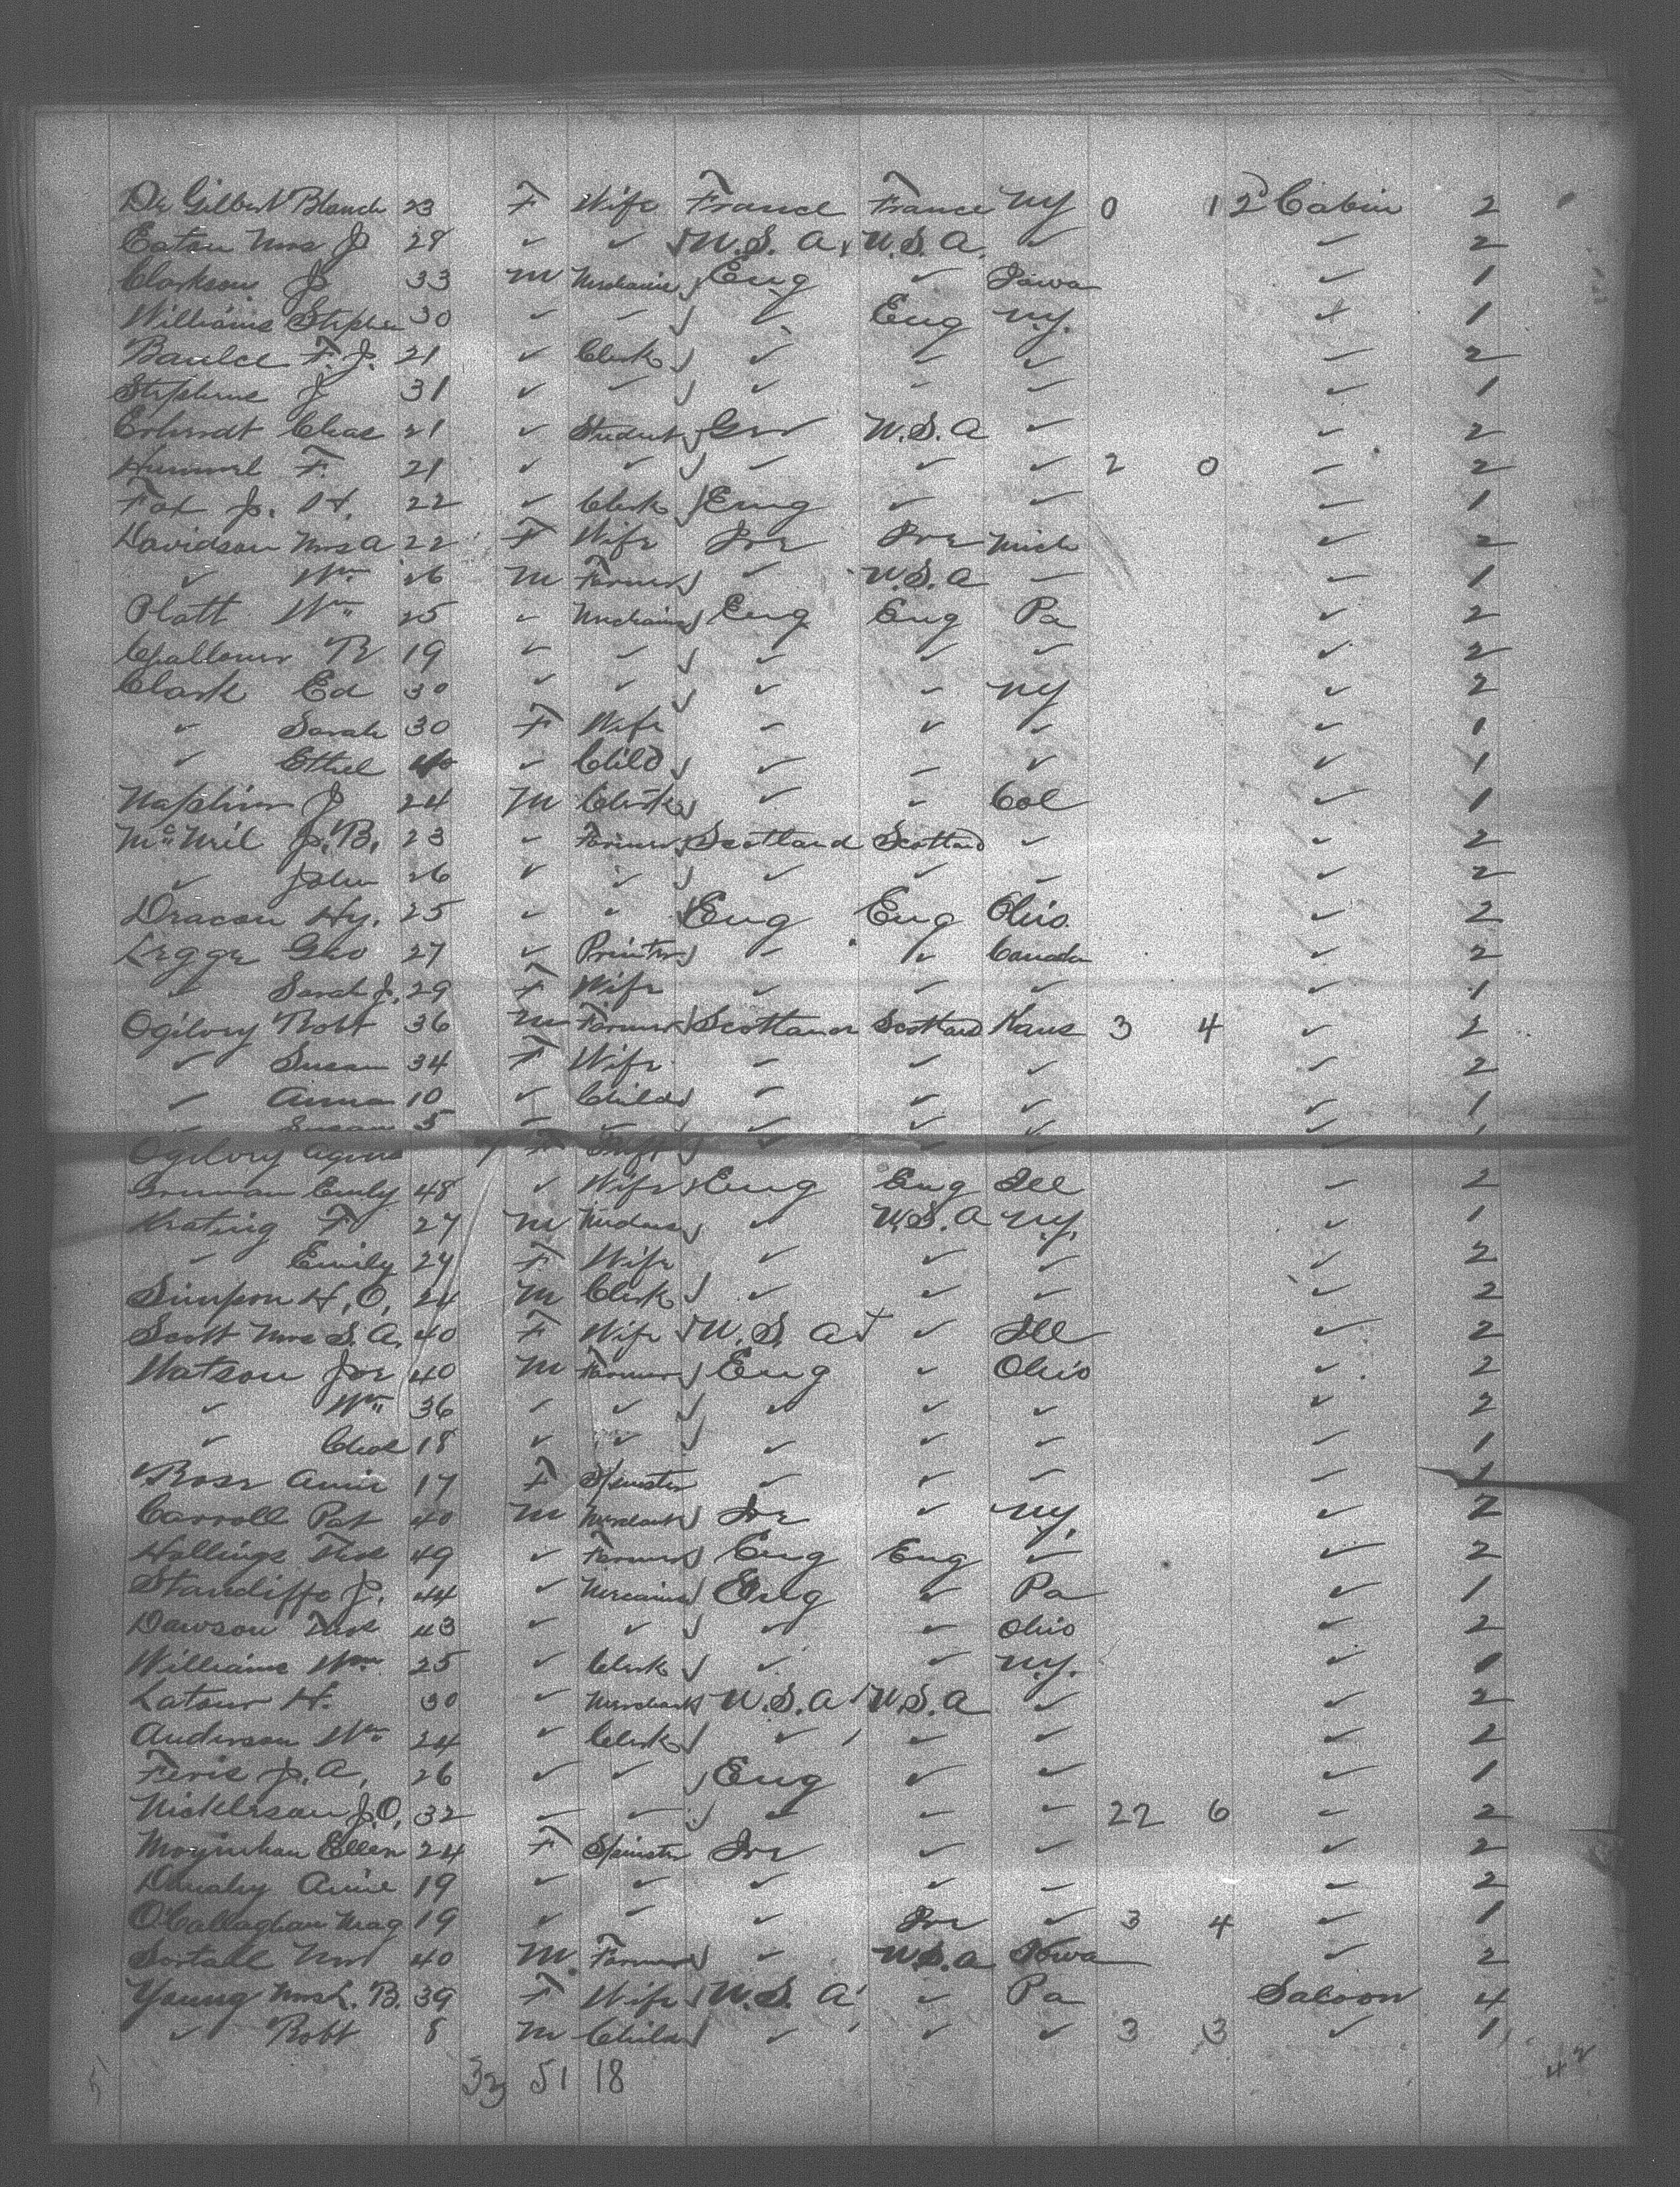 De Gilbert Blanch 23 F Wife France France NY 0 1 2d Cabin 2
Eaton Mrs J 28 ✓ ✓ U.S.A U.S.A. ✓ ✓ 2
Clarkson J 33 M Mechanic Eng ✓ Iowa ✓ 1
Williams Stephen 30 ✓ ✓ ✓ Eng N.Y. ✓ 1
F.J. 21 ✓ Clerk ✓ ✓ ✓ ✓ 2
Stephens J 31 ✓ ✓ ✓ ✓ ✓ ✓ 1
Erhardt Chas 21 ✓ Student Ger U.S.A ✓ ✓ 2
Hummel F. 21 ✓ ✓ ✓ ✓ ✓ 2 0 ✓ 2
Fox J. H. 22 ✓ Clerk Eng ✓ ✓ ✓ 1
Davidson Mrs A 22 F Wife Ire Ire Mich ✓ 2
✓ Wm 26 M Farmer ✓ U.S.A ✓ ✓ 1
Platt Wm 25 ✓ Mechanic Eng Eng Pa ✓ 2
R 19 ✓ ✓ ✓ ✓ ✓ ✓ 2
Clark Ed 30 ✓ ✓ ✓ ✓ NY ✓ 2
✓ Sarah 30 F Wife ✓ ✓ ✓ ✓ 1
✓ Ethel ✓ Child ✓ ✓ ✓ ✓ 1
J 24 M Clerk ✓ ✓ Col ✓ 1
McNeil J.B. 23 ✓ Farmer Scotland Scotland ✓ ✓ 2
✓ John 26 ✓ ✓ ✓ ✓ ✓ ✓ 2
Dracon Hy. 25 ✓ ✓ Eng Eng Ohio ✓ 2
Legge Geo 27 ✓ Printer ✓ ✓ Canada ✓ 2
✓ Sarah J. 29 F Wife ✓ ✓ ✓ ✓ 1
Ogilvry Robt 36 M Farmer Scotland Scotland Kans 3 4 ✓ 2
✓ Susan 34 F Wife ✓ ✓ ✓ ✓ 2
✓ Anna 10 ✓ Child ✓ ✓ ✓ ✓ 1
✓ Susan 5 ✓ ✓ ✓ ✓ ✓ ✓ 1
Ogilvry Agnes F
Gorman Emily 48 ✓ Wife Eng Eng Ill ✓ 2
Keating F. 27 M ✓ U.S.A N.Y. ✓ 1
✓ Emily 24 F Wife ✓ ✓ ✓ ✓ 2
Simpson H.O. 24 M Clerk ✓ ✓ ✓ ✓ 2
Scott Mrs S.A. 40 F Wife U.S.A ✓ Ill ✓ 2
Watson Joe 40 M Farmer Eng ✓ Ohio ✓ 2
✓ Wm 36 ✓ ✓ ✓ ✓ ✓ ✓ 2
✓ Chas 18 ✓ ✓ ✓ ✓ ✓ ✓ 1
Annie 17 F Spinster ✓ ✓ ✓ ✓ 1
Carroll Pat 40 M Merchant Ire ✓ N.Y. ✓ 2
Hollings Thos 49 ✓ Farmer Eng Eng ✓ ✓ 2
Standiffe J. 44 ✓ Mechanic Eng ✓ Pa ✓ 1
Dawson Thos 43 ✓ ✓ ✓ ✓ Ohio ✓ 2
Williams Wm 25 ✓ Clerk ✓ ✓ N.Y. ✓ 1
Latour H. 30 ✓ Merchant U.S.A U.S.A ✓ ✓ 2
Anderson Wm 24 ✓ Clerk ✓ ✓ ✓ ✓ 2
Feris J.A. 26 ✓ ✓ Eng ✓ ✓ ✓ 1
Nicklesan J.O. 32 ✓ ✓ ✓ ✓ ✓ 22 6 ✓ 2
Moynihan Ellen 24 F Spinster Ire ✓ ✓ ✓ 2
Annie 19 ✓ ✓ ✓ ✓ ✓ ✓ 2
O'Callaghan Mag 19 ✓ ✓ ✓ Ire ✓ 3 4 ✓ 1
40 M. Farmer ✓ U.S.A Iowa ✓ 2
Young Mrs L. B. 39 F Wife U.S.A ✓ Pa Saloon 4
✓ Robt 8 M Child ✓ ✓ ✓ 3 3 ✓ 1
33 51 18
42